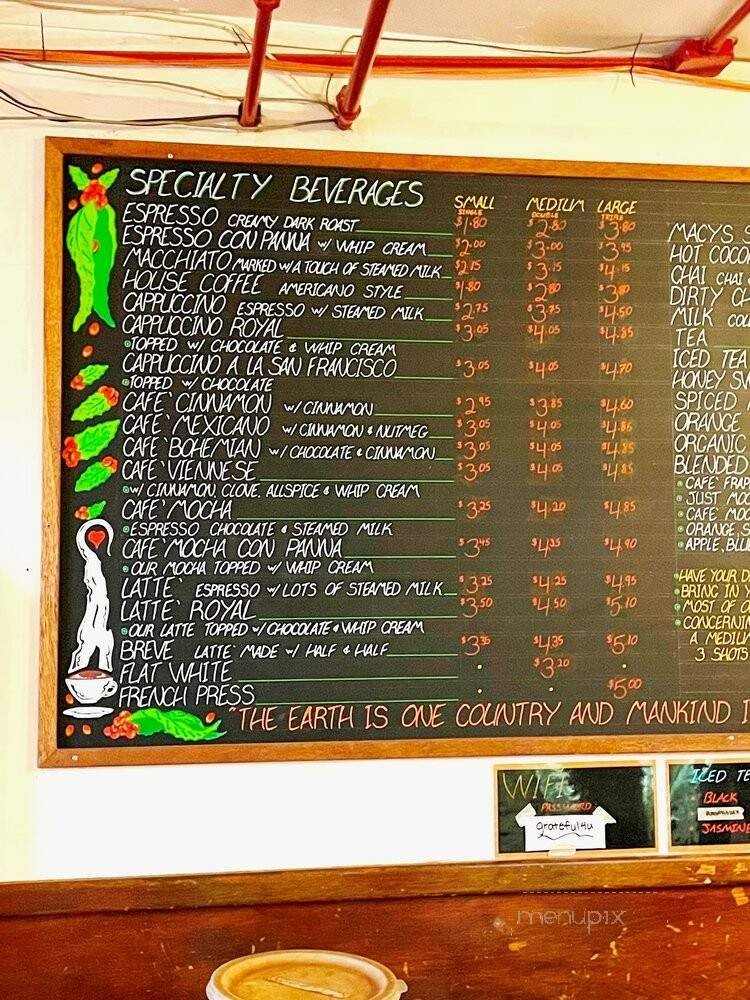 SPECIALTY BEVERAGES SMALL MEDIUM LARGE
SINGLE DOUBLE TRIPLE
ESPRESSO CREAMY DARK ROAST $1.80 $2.80 $3.80
ESPRESSO CON PANNA W/ WHIP CREAM $2.00 $3.00 $3.95
MACCHIATO MARKED W/A TOUCH OF STEAMED MILK $2.15 $3.15 $4.15
HOUSE COFFEE AMERICANO STYLE $1.80 $2.80 $3.80
CAPPUCCINO ESPRESSO W/ STEAMED MILK $2.75 $3.75 $4.50
CAPPUCCINO ROYAL $3.05 $4.05 $4.85
TOPPED W/ CHOCOLATE & WHIP CREAM
CAPPUCCINO A LA SAN FRANCISCO $3.05 $4.05 $4.70
TOPPED W/ CHOCOLATE
CAFE` CINNAMON W/ CINNAMON $2.95 $3.85 $4.60
CAFE` MEXICANO W/ CINNAMON & NUTMEG $3.05 $4.05 $4.85
CAFE` BOHEMIAN W/ CHOCOLATE & CINNAMON $3.05 $4.05 $4.85
CAFE` VIENNESE $3.05 $4.05 $4.85
W/ CINNAMON, CLOVE, ALLSPICE & WHIP CREAM
CAFE` MOCHA $3.25 $4.20 $4.85
ESPRESSO CHOCOLATE & STEAMED MILK
CAFE` MOCHA CON PANNA $3.45 $4.35 $4.90
OUR MOCHA TOPPED W/ WHIP CREAM
LATTE` ESPRESSO W/ LOTS OF STEAMED MILK $3.25 $4.25 $4.95
LATTE` ROYAL $3.50 $4.50 $5.10
OUR LATTE TOPPED W/ CHOCOLATE & WHIP CREAM
BREVE LATTE` MADE W/ HALF & HALF $3.35 $4.35 $5.10
FLAT WHITE $3.20
FRENCH PRESS $5.00
"THE EARTH IS ONE COUNTRY AND MANKIND
MACY'S S
HOT COCO
CHAI CHAI
DIRTY CH
MILK COL
TEA
ICED TEA
HONEY SW
SPICED
ORANGE
ORGANIC
BLENDED
CAFE` FRAP
JUST MO
CAFE MOC
ORANGE, S
APPLE, BLU
HAVE YOUR D
BRING IN Y
MOST OF O
CONCERNIN
A MEDIU
3 SHOTS
WIFI
PASSWORD
grateful4u
ICED TE
BLACK
JASMINE
menupix